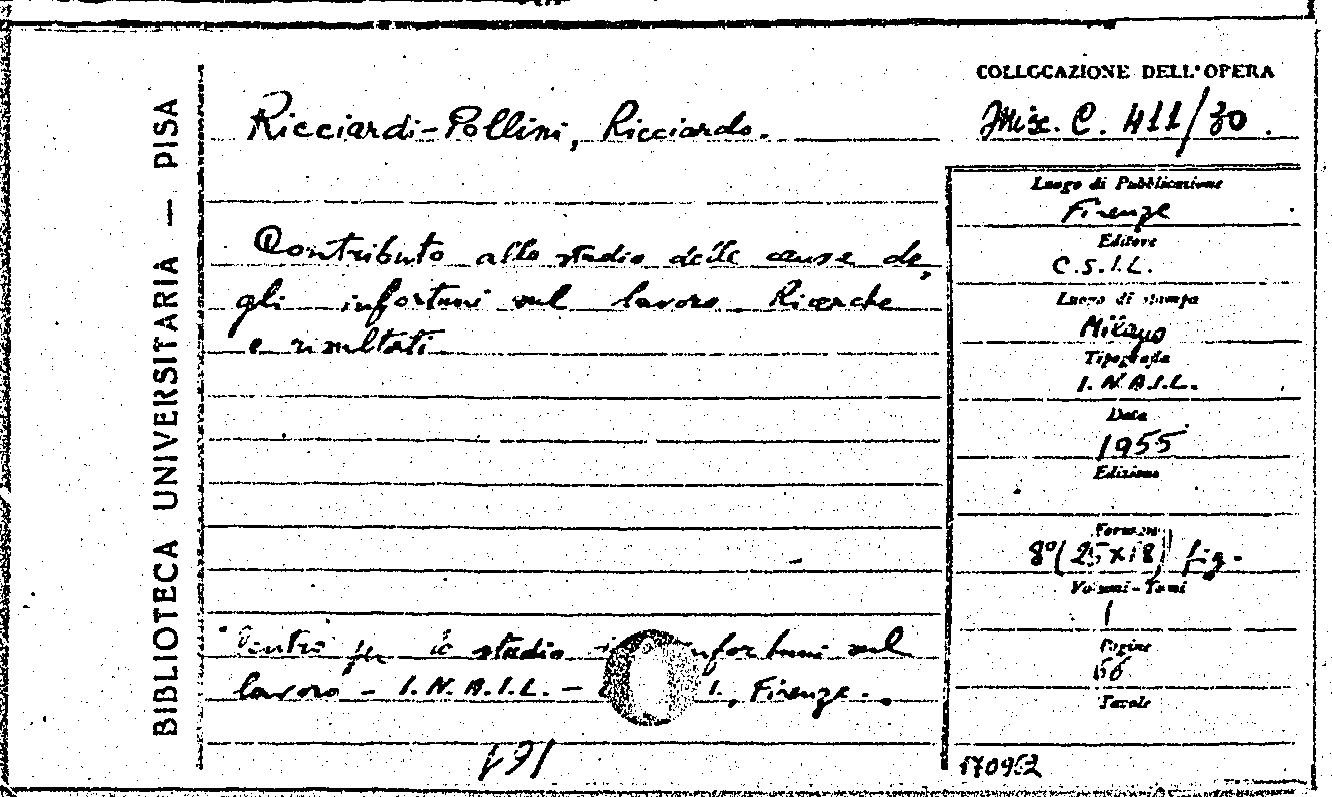 BIBLIOTECA UNIVERSITARIA — PISA
COLLOCAZIONE DELL'OPERA
Ricciardi-Pollini, Ricciardo.
Misc. C. 411/30.
Contributo allo studio delle cause de,
gli infortuni sul lavoro. Ricerche
e risultati
Luogo di Pubblicazione
Firenze
Editore
C.S.I.L.
Luogo di stampa
Milano
Tipografia
I.N.A.I.L.
Data
1955
Edizione
Formato
8° (25x18) fig.
Volumi - Tomi
1
Pagine
66
Tavole
Centro per lo studio infortuni sul
lavoro - I.N.A.I.L. - Firenze.